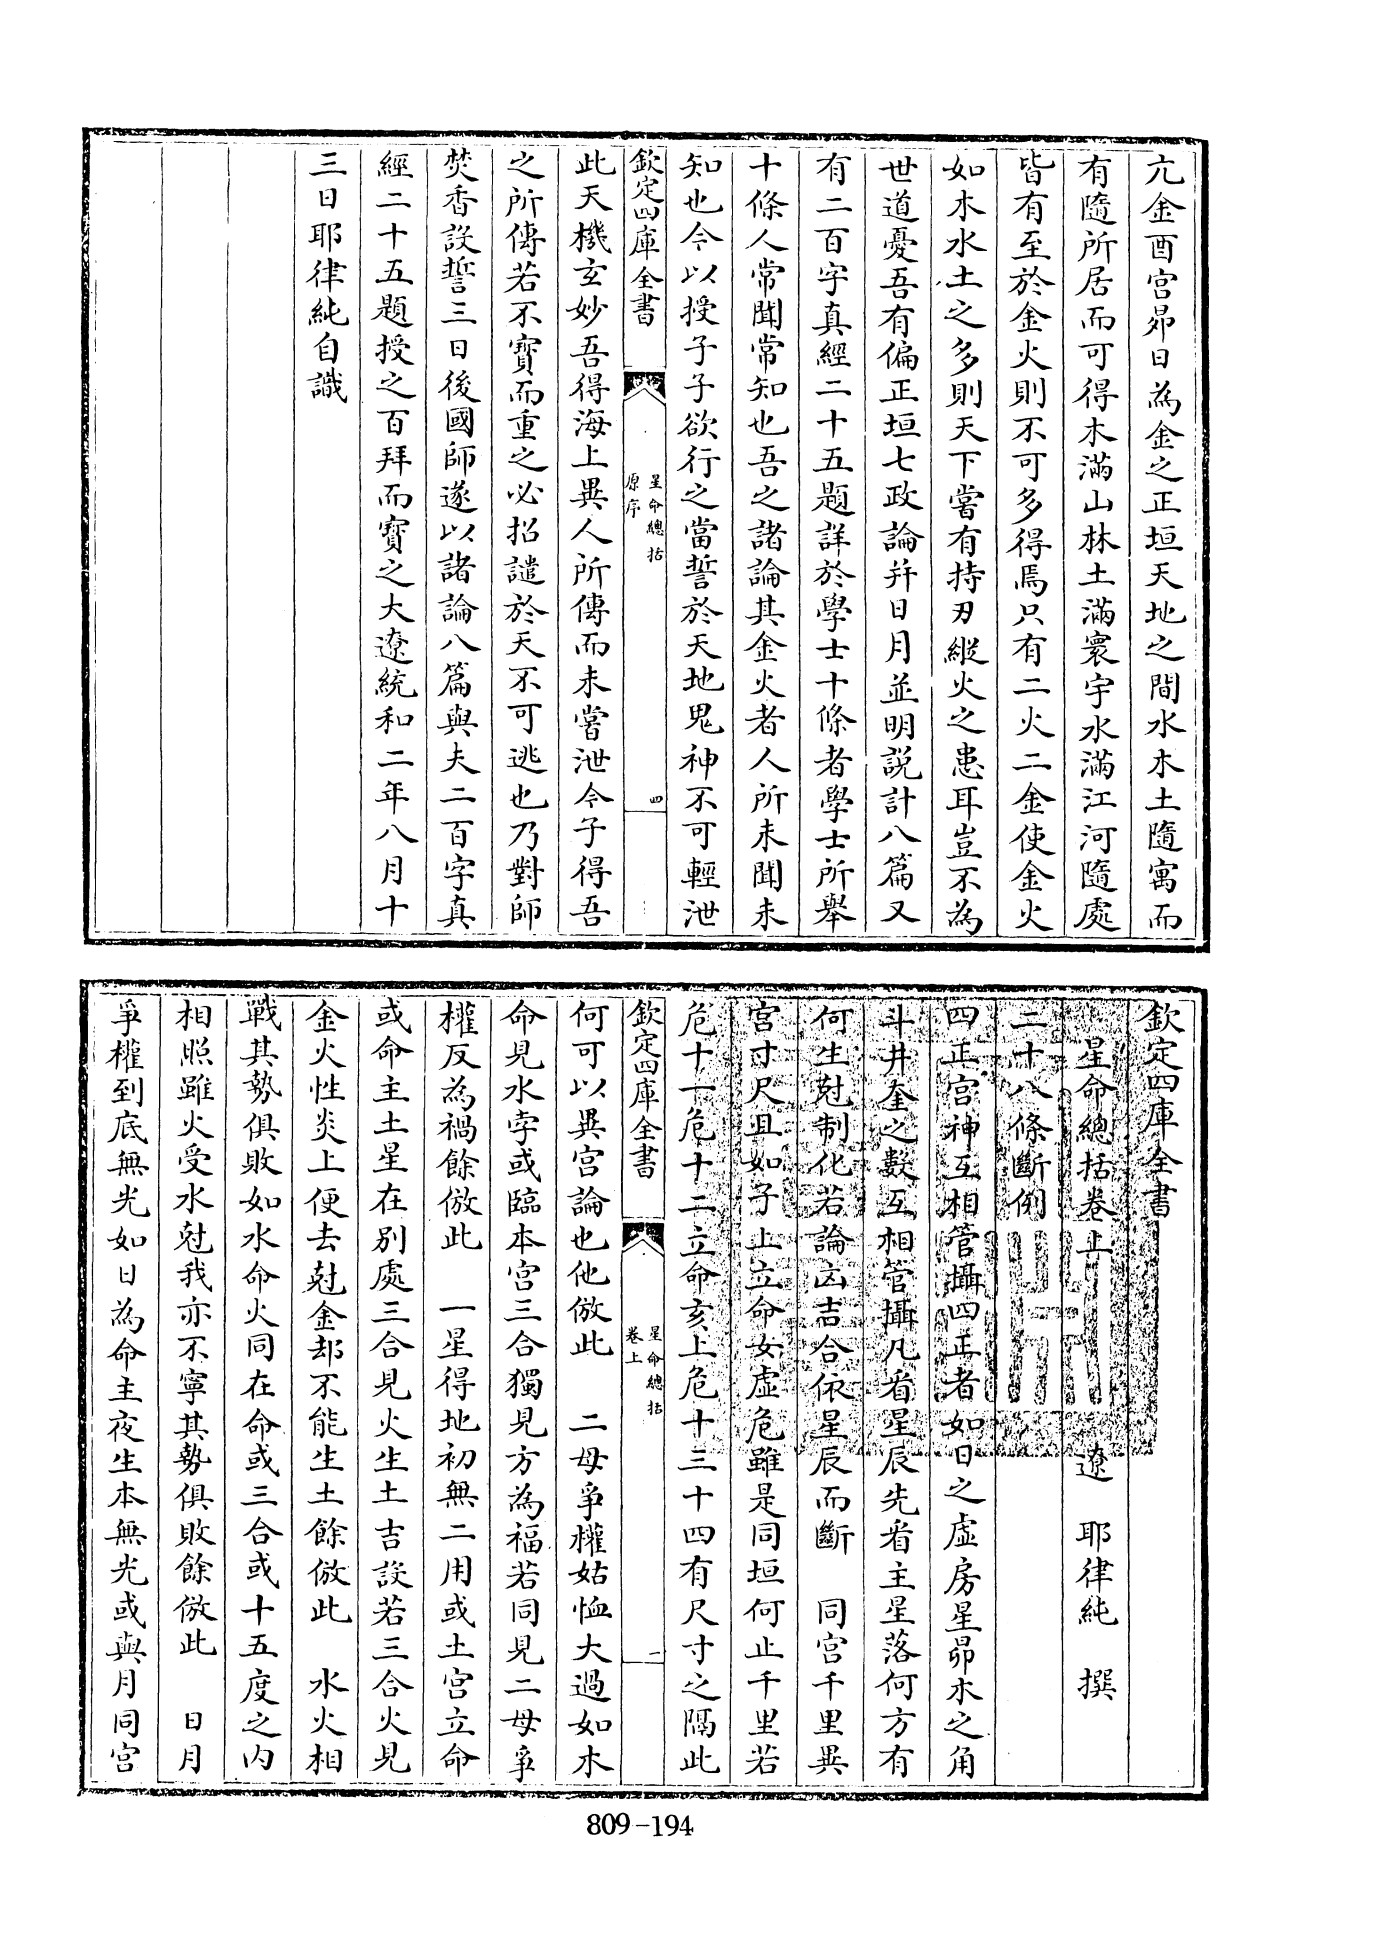 亢金酉宫昴日為金之正垣天地之間水木土隨寓而
有隨所居而可得木滿山林土滿寰宇水滿江河隨處
皆有至於金火則不可多得焉只有二火二金使金火
如木水土之多則天下嘗有持刃縱火之患耳豈不為
世道憂吾有偏正垣七政論并日月並明説計八篇又
有二百字真經二十五題詳於學士十條者學士所舉
十條人常聞常知也吾之諸論其金火者人所未聞未
知也今以授子子欲行之當誓於天地鬼神不可輕泄
欽定四庫全書
星命總括
原序
四
此天機玄妙吾得海上異人所傳而未嘗泄今子得吾
之所傳若不寳而重之必招譴於天不可逃也乃對師
焚香設誓三日後國師遂以諸論八篇與夫二百字真
經二十五題授之百拜而寳之大遼統和二年八月十
三日耶律純自識
欽定四庫全書
星命總括卷上
遼 耶律純 撰
二十八條斷例
四正宫神互相管攝四正者如日之虛房星昴木之角
斗井奎之數互相管攝凡看星辰先看主星落何方有
何生尅制化若論凶吉合依星辰而斷 同宫千里異
宫寸尺且如子上立命女虛危雖是同垣何止千里若
危十一危十二立命亥上危十三十四有尺寸之隔此
欽定四庫全書
星命總括
卷上
二
何可以異宫論也他倣此 二母爭權姑恤大過如木
命見水孛或臨本宫三合獨見方為福若同見二母爭
權反為禍餘倣此 一星得地初無二用或土宫立命
或命主土星在别處三合見火生土吉設若三合火見
金火性炎上便去尅金却不能生土餘倣此 水火相
戰其勢俱敗如水命火同在命或三合或十五度之内
相照雖火受水尅我亦不寧其勢俱敗餘倣此 日月
爭權到底無光如日為命主夜生本無光或與月同宫
809-194